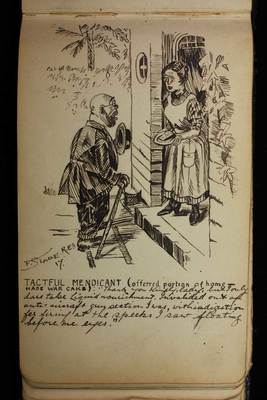 RES
17.
TACTFUL MENDICANT (offerred portion of home
MADE WAR CAKE): "Thank you kindly, lady, but I only
dare take liquid nourishment. Invalided out of
anti-aircraft gun section I was, with indigestion
for firing at the specks I saw floating
before me eyes.